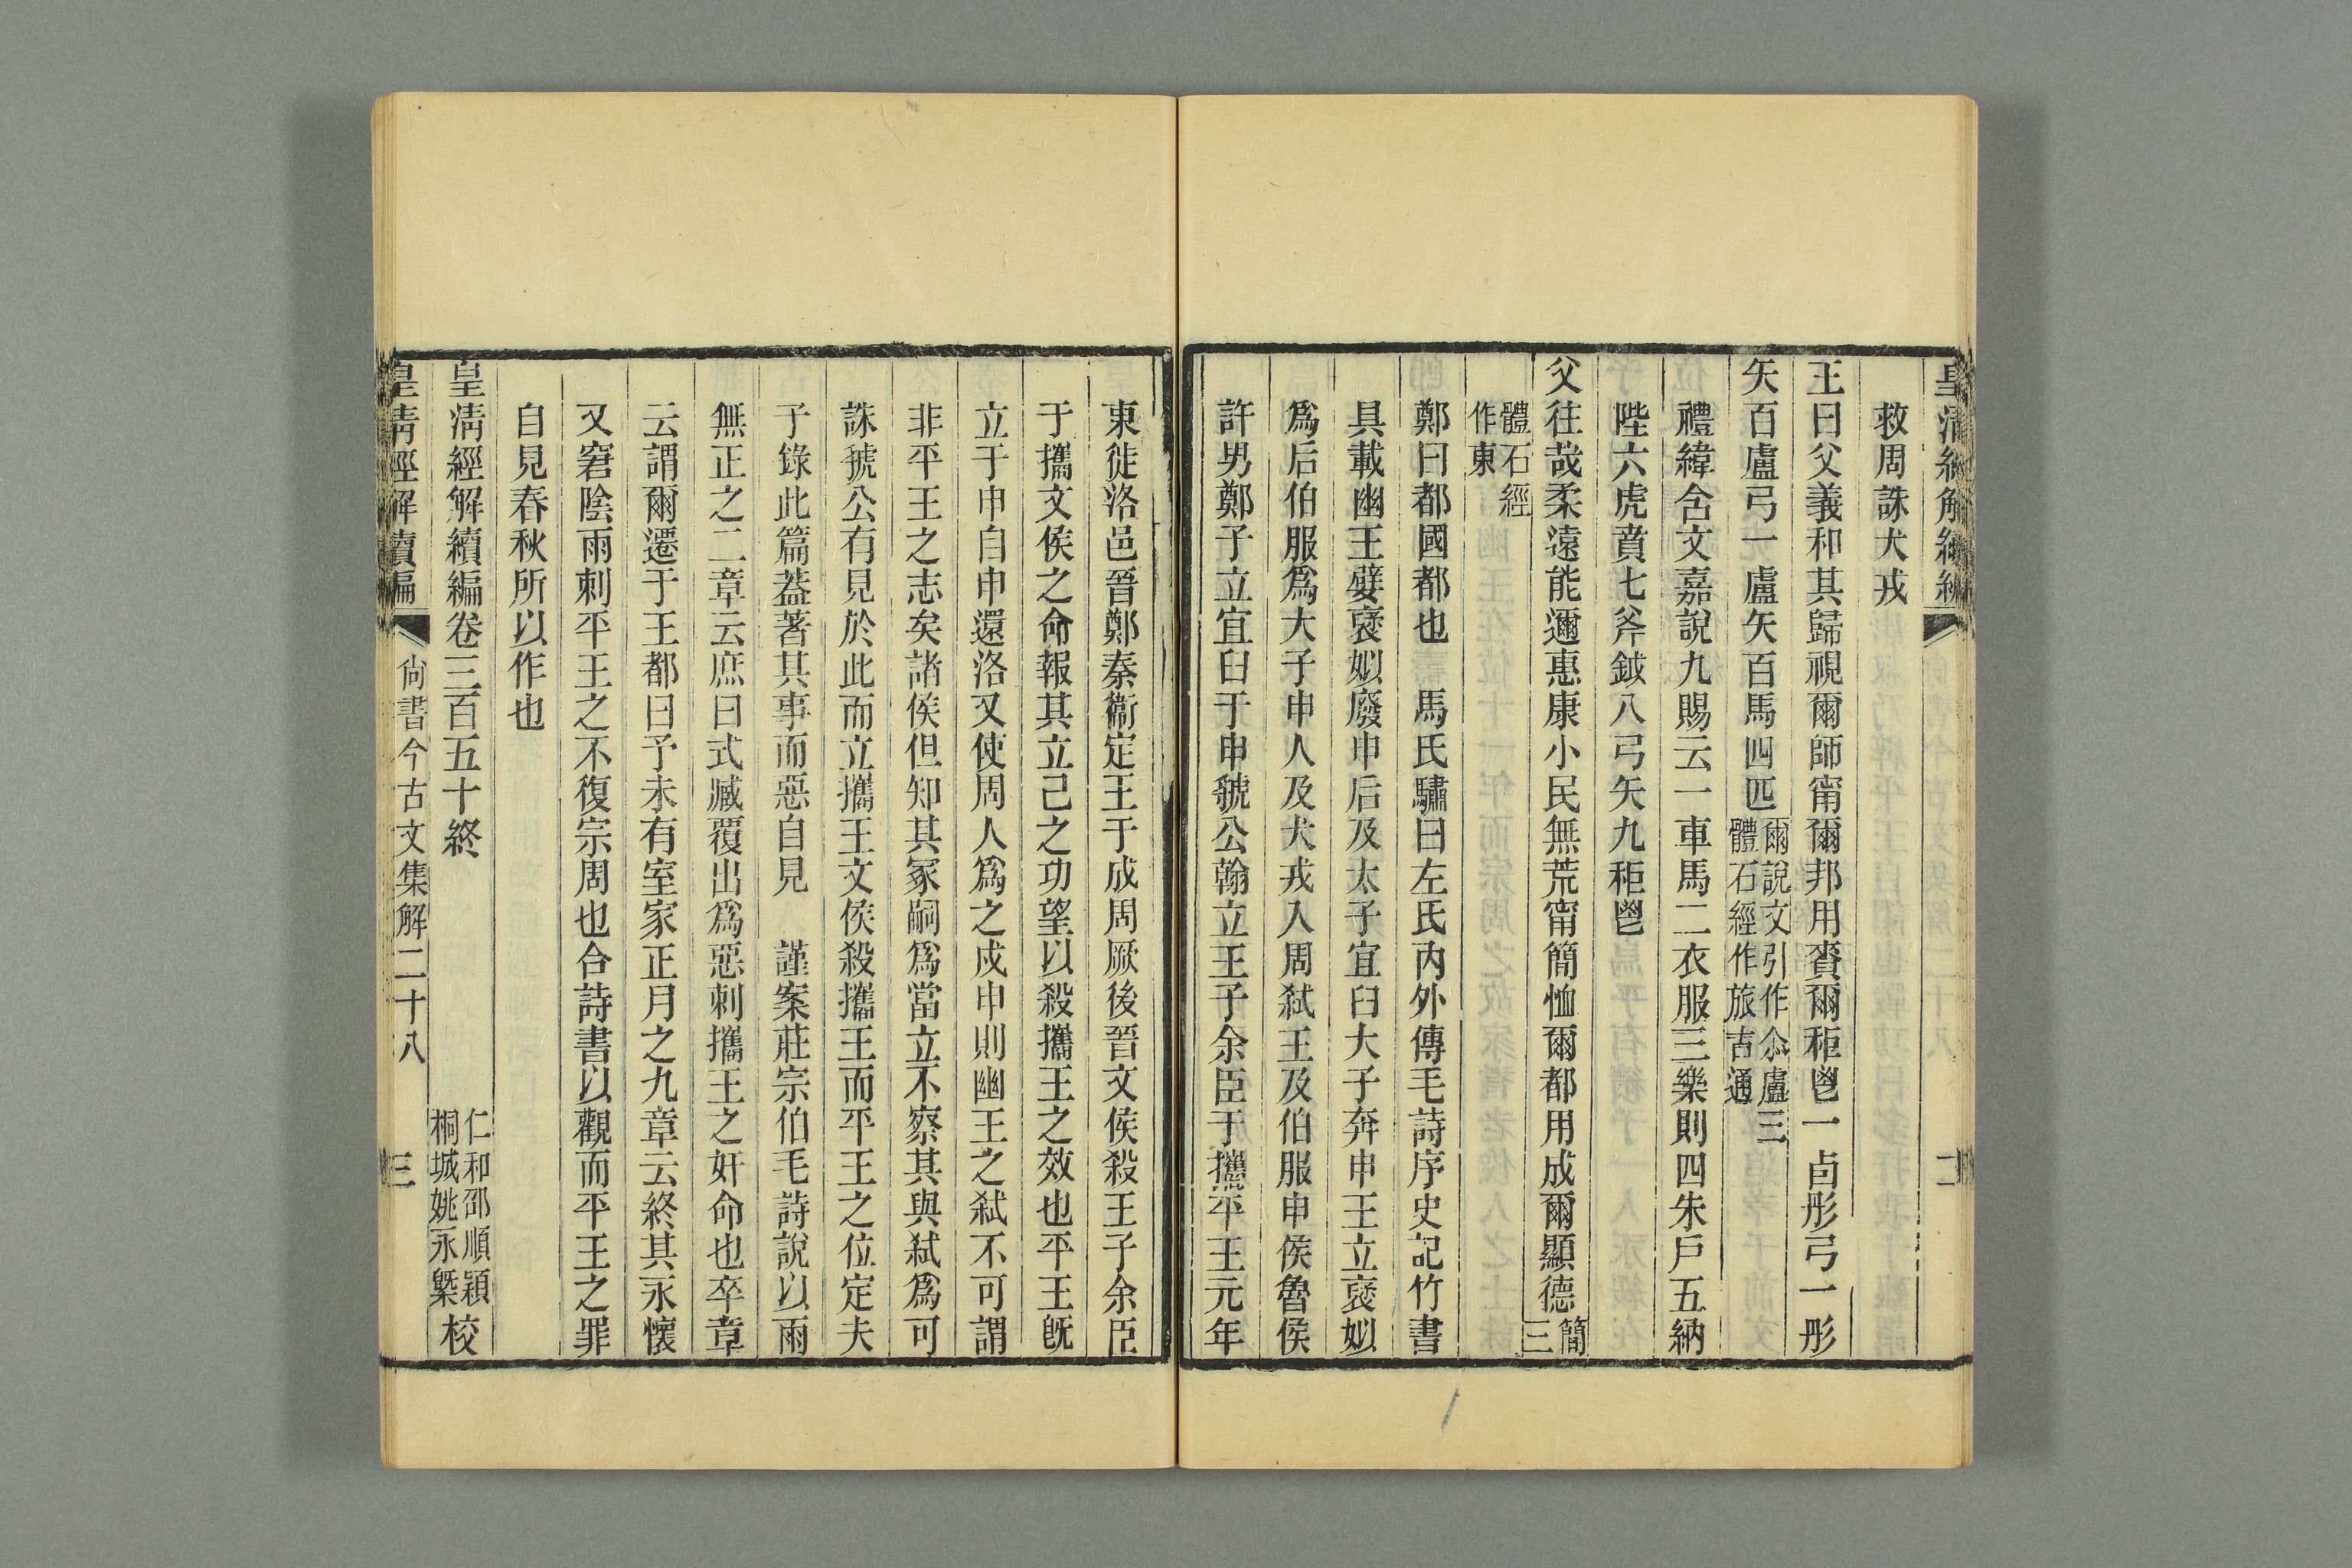 皇清經解續編
二
救周誅犬戎
王曰父義和其歸視爾師甯爾邦用賚爾秬鬯一卣彤弓一彤
矢百盧弓一盧矢百馬四匹爾說文引作尒盧三
體石經作旅古通
禮緯含文嘉說九賜云一車馬二衣服三樂則四朱戶五納
陛六虎賁七斧鉞八弓矢九秬鬯
父往哉柔遠能邇惠康小民無荒甯簡恤爾都用成爾顯德簡
三
體石經
作東
鄭曰都國都也　馬氏驌曰左氏內外傳毛詩序史記竹書
具載幽王嬖襃姒廢申后及太子宜臼大子奔申王立襃姒
爲后伯服爲大子申人及犬戎入周弒王及伯服申侯魯侯
許男鄭子立宜臼于申虢公翰立王子余臣于攜平王元年
東徙洛邑晉鄭秦衞定王于成周厥後晉文侯殺王子余臣
于攜文侯之命報其立己之功望以殺攜王之效也平王旣
立于申自申還洛又使周人爲之戍申則幽王之弒不可謂
非平王之志矣諸侯但知其冢嗣爲當立不察其與弒爲可
誅虢公有見於此而立攜王文侯殺攜王而平王之位定夫
子錄此篇葢著其事而惡自見　謹案莊宗伯毛詩說以雨
無正之二章云庶曰式臧覆出爲惡刺攜王之奸命也卒章
云謂爾遷于王都曰予未有室家正月之九章云終其永懷
又窘陰雨刺平王之不復宗周也合詩書以觀而平王之罪
自見春秋所以作也
皇清經解續編卷三百五十終
仁和邵順穎
桐城姚永槩校
皇清經解續編
尙書今古文集解二十八
三